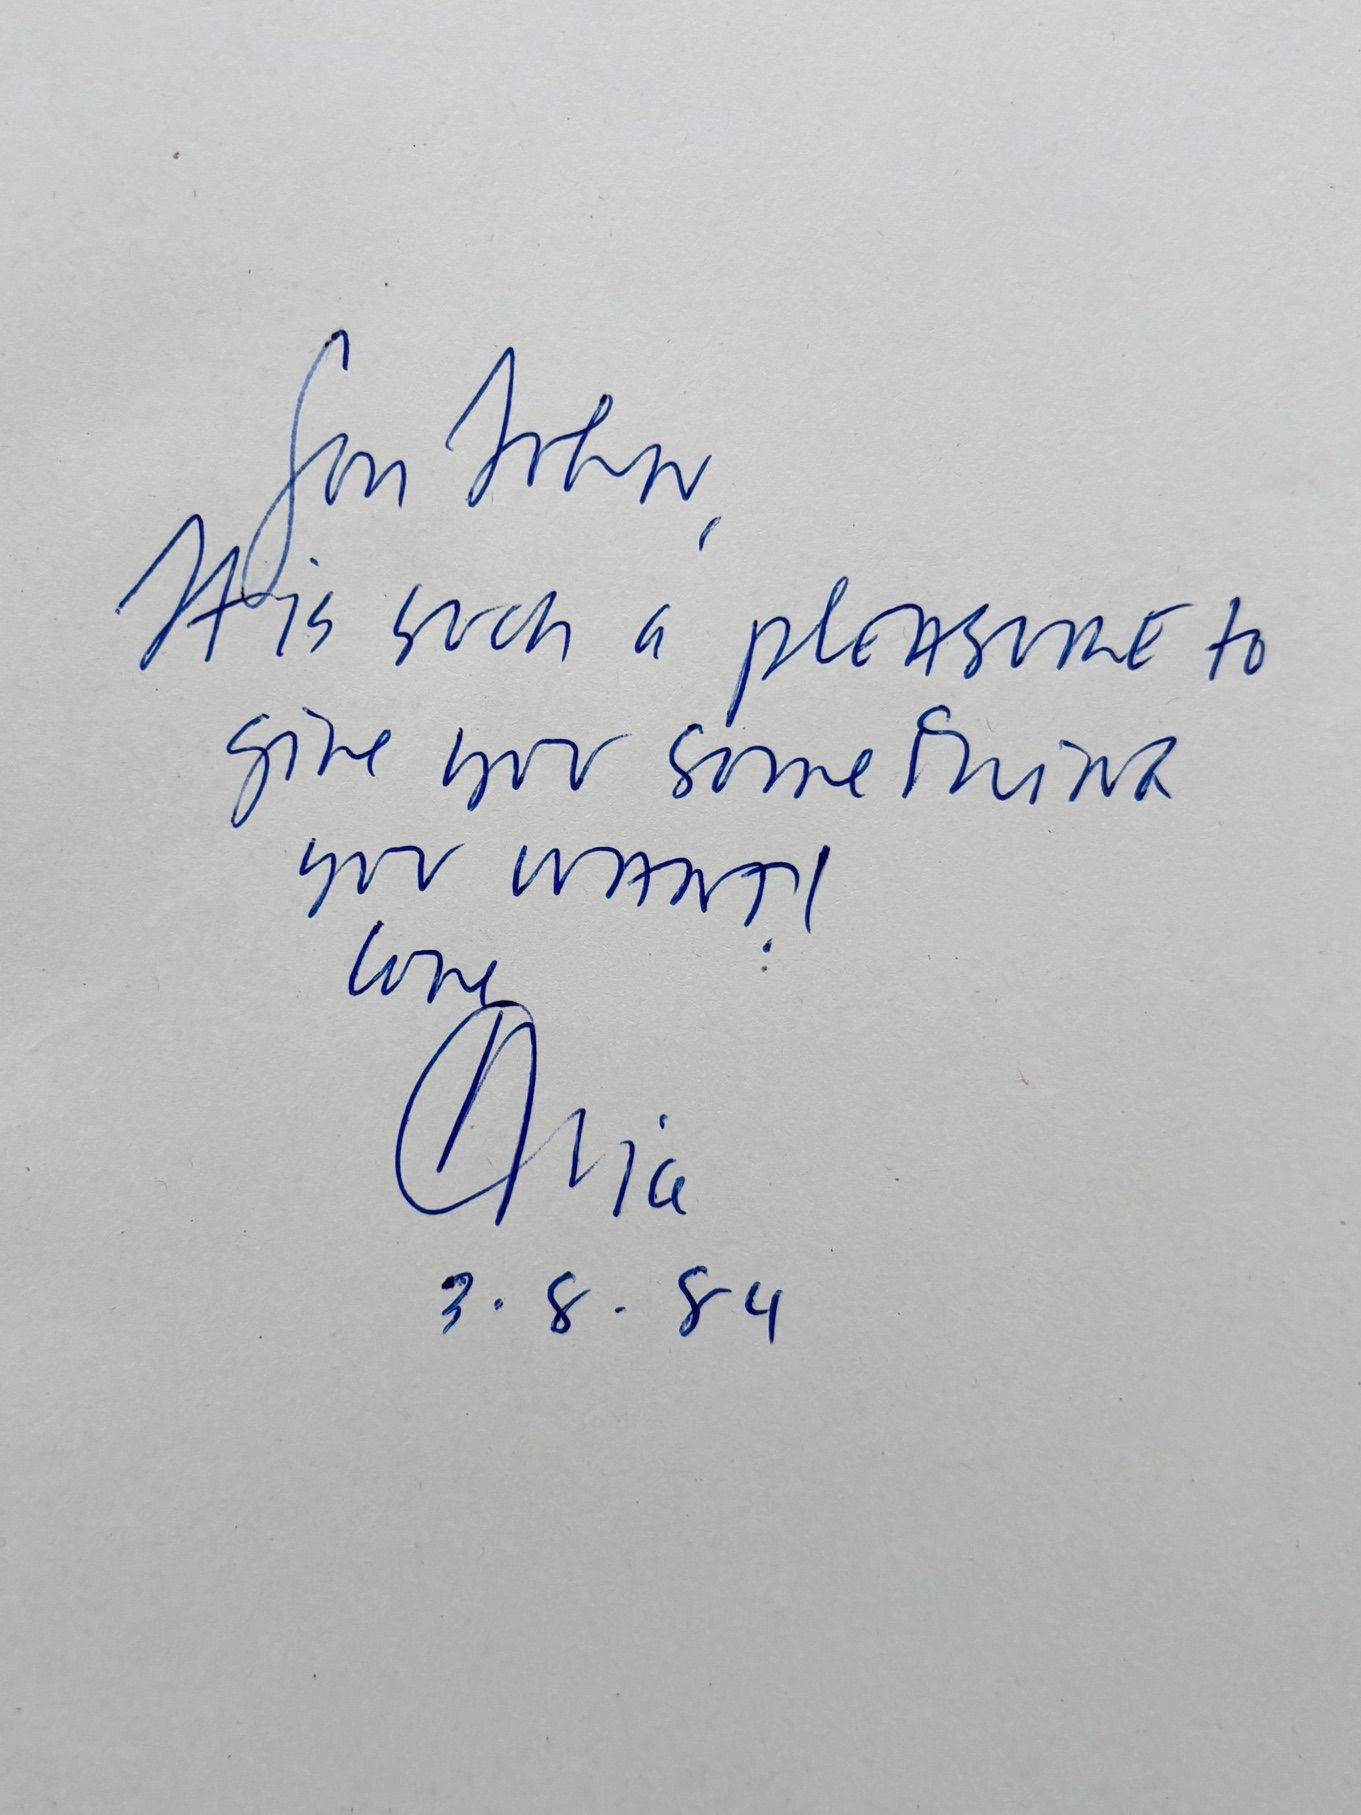 For John,
It is such a pleasure to
give you some think
you want!
Love
3.8.84